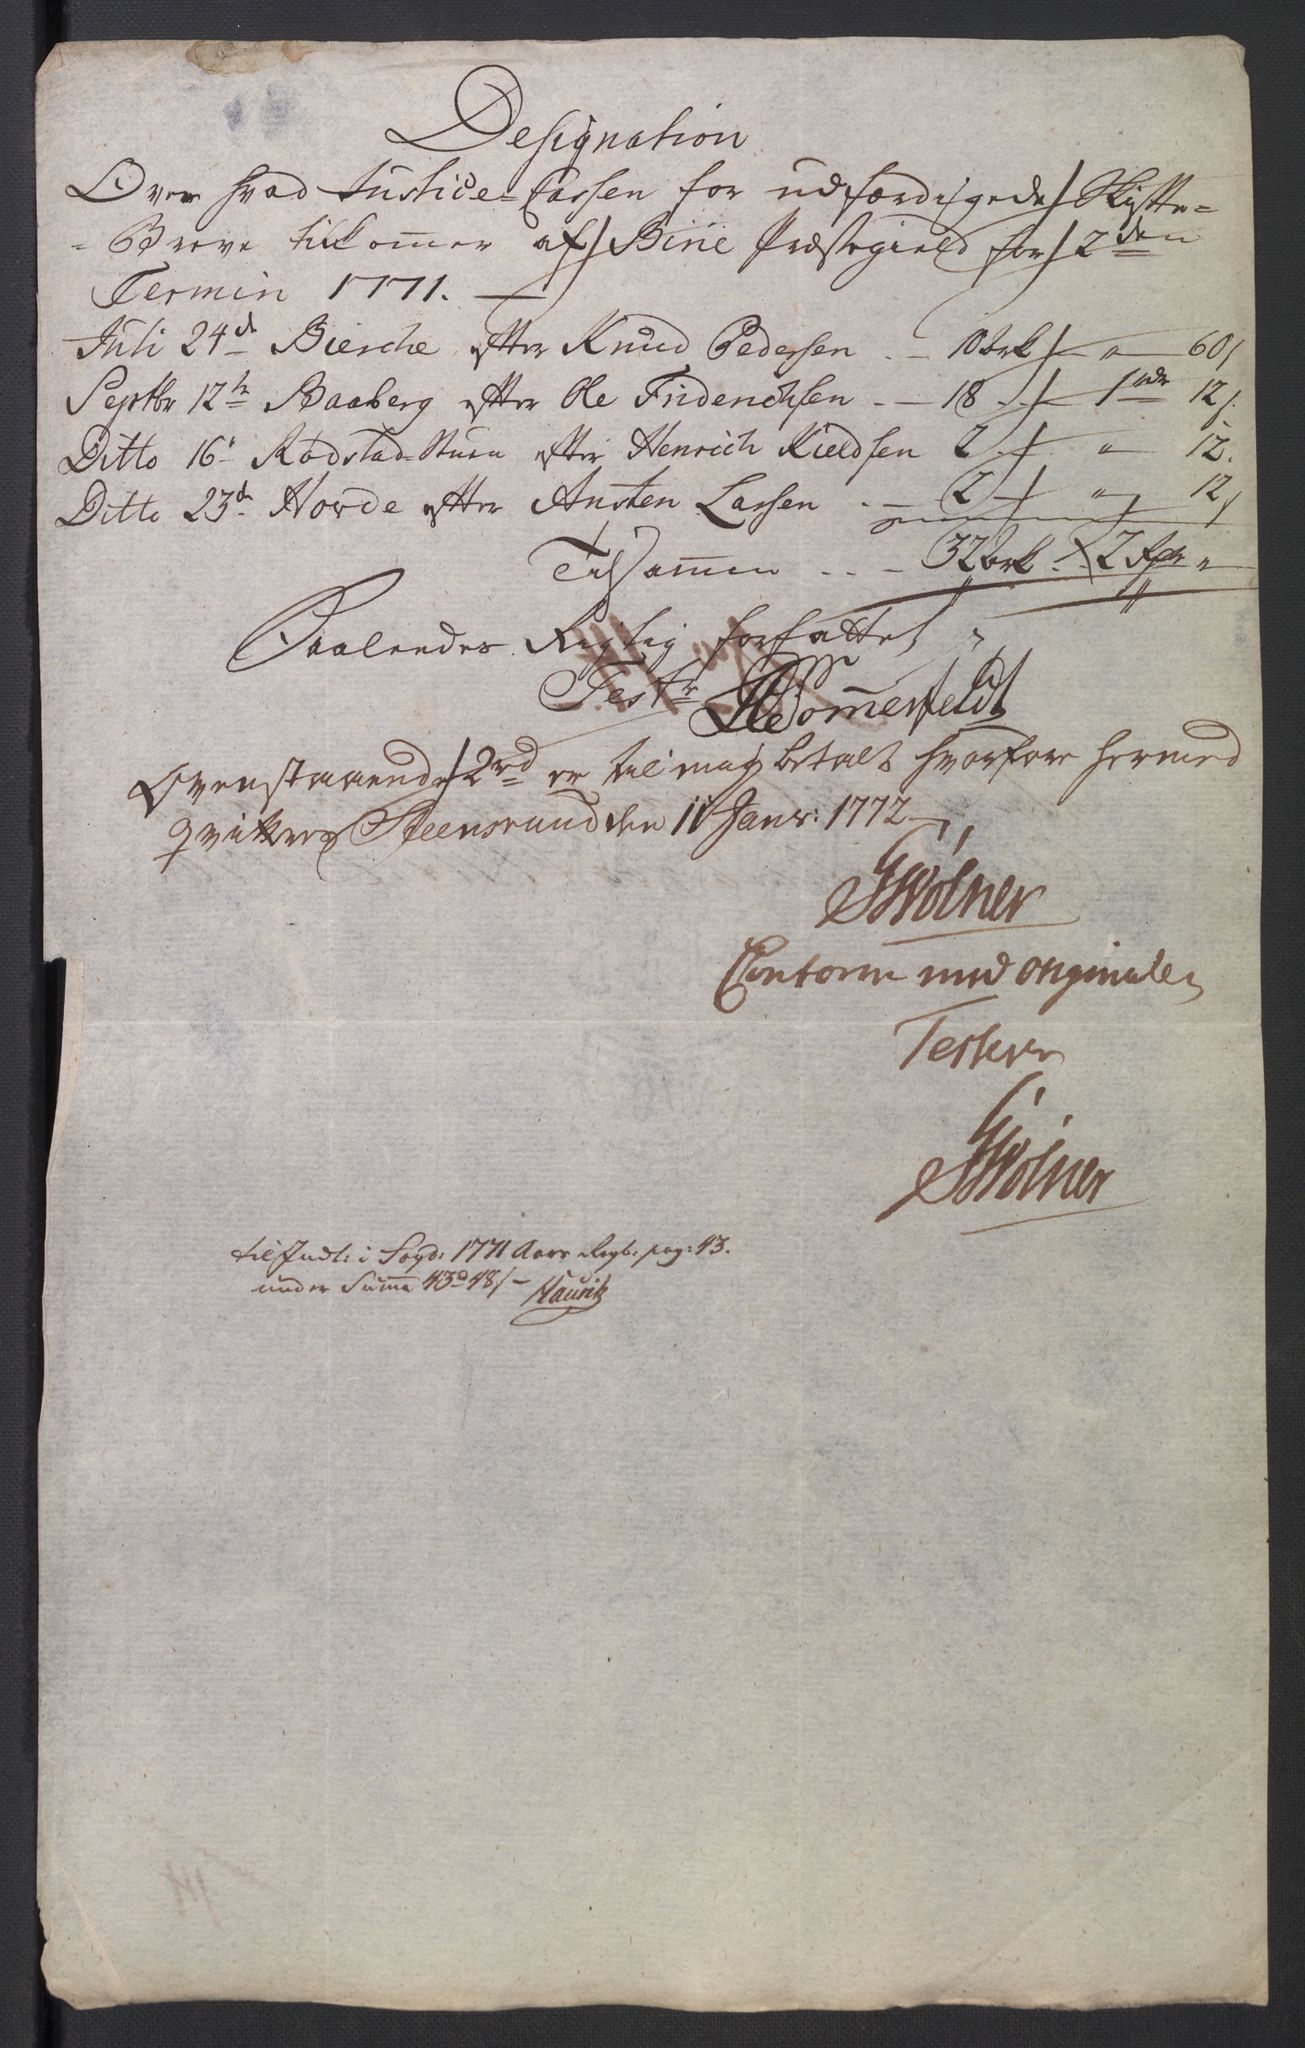 Designation
Over hvad Justice-Cassen for udfærdigede Skifte-
-Breve tilkommer af Birie Præstegield for 2den
Termin 1771.
Juli 24d Bierche efter Knud Pedersen - 10 Ark " 60 s
Septbr 12te Baaberg efter Ole Friderichsen - 18 - 1 rdr 12 s
Ditto 16d Rodstad Stuen efter Henrich Kieldsen 2 " 12.
Ditto 23d Hovde efter Austen Larsen - 2 " 12 s
Tilsammen - 32 Ark - 2 Rdr "
Saaledes Rigtig forfattet
Test. Sommerfeldt
Ovenstaaende 2rd er til mig betalt hvorfore hermed
qvitteres Steensrund den 11 Janr: 1772
Wolner
Conform med originalen
Testerer
Wolner
til Indt: i Fogd: 1771 Aars Regb: pag: 43.
under Summa 43d 48 s - Mauritz